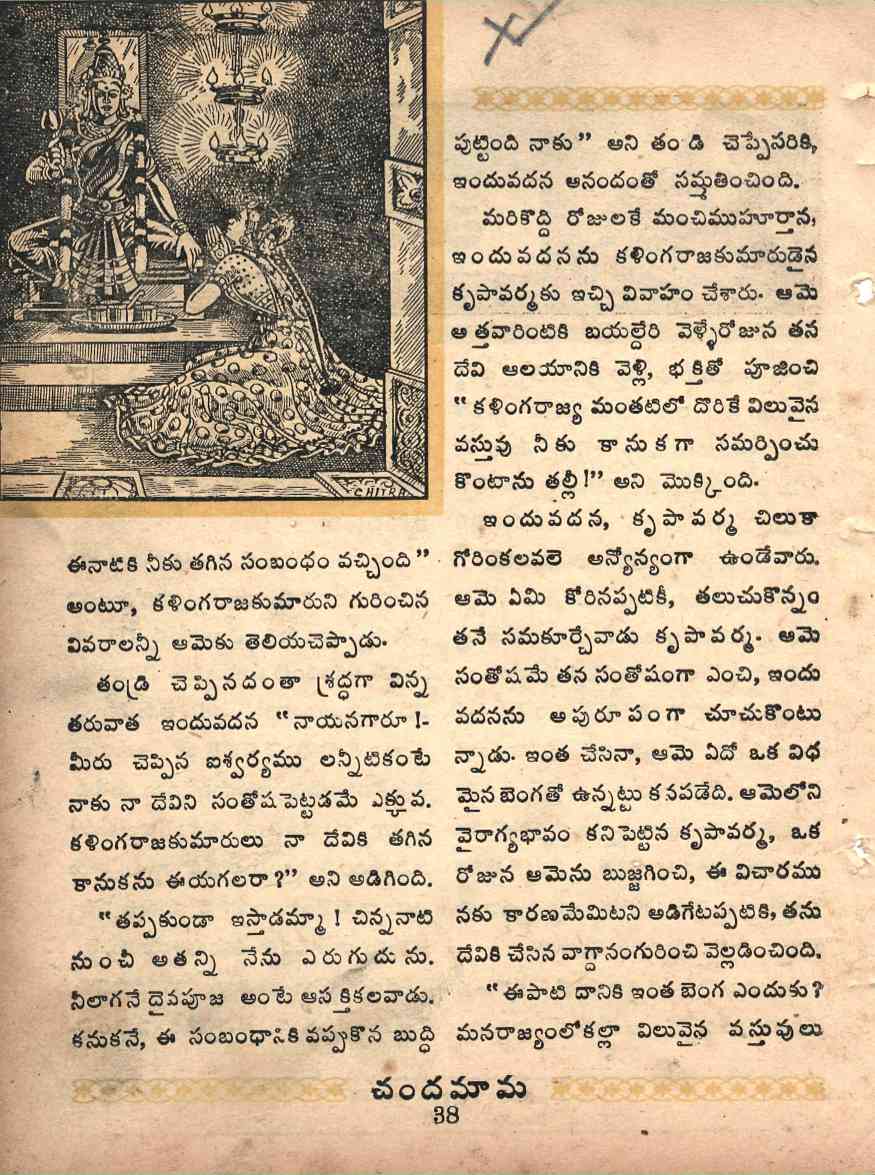 CHITRA
ఈనాటికి నీకు తగిన సంబంధం వచ్చింది”
అంటూ, కళింగరాజకుమారుని గురించిన
వివరాలన్నీ ఆమెకు తెలియచెప్పాడు.
తండ్రి చెప్పినదంతా శ్రద్ధగా విన్న
తరువాత ఇందువదన “నాయనగారూ !-
మీరు చెప్పిన ఐశ్వర్యము లన్నీటికంటే
నాకు నా దేవిని సంతోషపెట్టడమే ఎక్కువ.
కళింగరాజకుమారులు నా దేవికి తగిన
కానుకను ఈయగలరా ?” అని అడిగింది.
“తప్పకుండా ఇస్తాడమ్మా ! చిన్ననాటి
నుంచీ అతన్ని నేను ఎరుగుదును.
నీలాగనే దైవపూజ అంటే ఆసక్తికలవాడు.
కనుకనే, ఈ సంబంధానికి వప్పుకొన బుద్ధి
పుట్టింది నాకు” అని తండ్రి చెప్పేసరికి,
ఇందువదన ఆనందంతో సమ్మతించింది.
మరికొద్ది రోజులకే మంచిముహూర్తాన,
ఇందువదనను కళింగరాజకుమారుడైన
కృపావర్మకు ఇచ్చి వివాహం చేశారు. ఆమె
అత్తవారింటికి బయల్దేరి వెళ్ళేరోజున తన
దేవి ఆలయానికి వెళ్లి, భక్తితో పూజించి
“కళింగరాజ్య మంతటిలో దొరికే విలువైన
వస్తువు నీకు కానుకగా సమర్పించు
కొంటాను తల్లీ !” అని మొక్కింది.
ఇందువదన, కృపావర్మ చిలుకా
గోరింకలవలె అన్యోన్యంగా ఉండేవారు.
ఆమె ఏమి కోరినప్పటికీ, తలుచుకొన్నం
తనే సమకూర్చేవాడు కృపావర్మ. ఆమె
సంతోషమే తన సంతోషంగా ఎంచి, ఇందు
వదనను అపురూపంగా చూచుకొంటు
న్నాడు. ఇంత చేసినా, ఆమె ఏదో ఒక విధ
మైన బెంగతో ఉన్నట్టు కనపడేది. ఆమెలోని
వైరాగ్యభావం కనిపెట్టిన కృపావర్మ, ఒక
రోజున ఆమెను బుజ్జగించి, ఈ విచారము
నకు కారణమేమిటని అడిగేటప్పటికి, తను
దేవికి చేసిన వాగ్దానంగురించి వెల్లడించింది.
“ఈపాటి దానికి ఇంత బెంగ ఎందుకు ?
మనరాజ్యంలోకల్లా విలువైన వస్తువులు
చందమామ
38